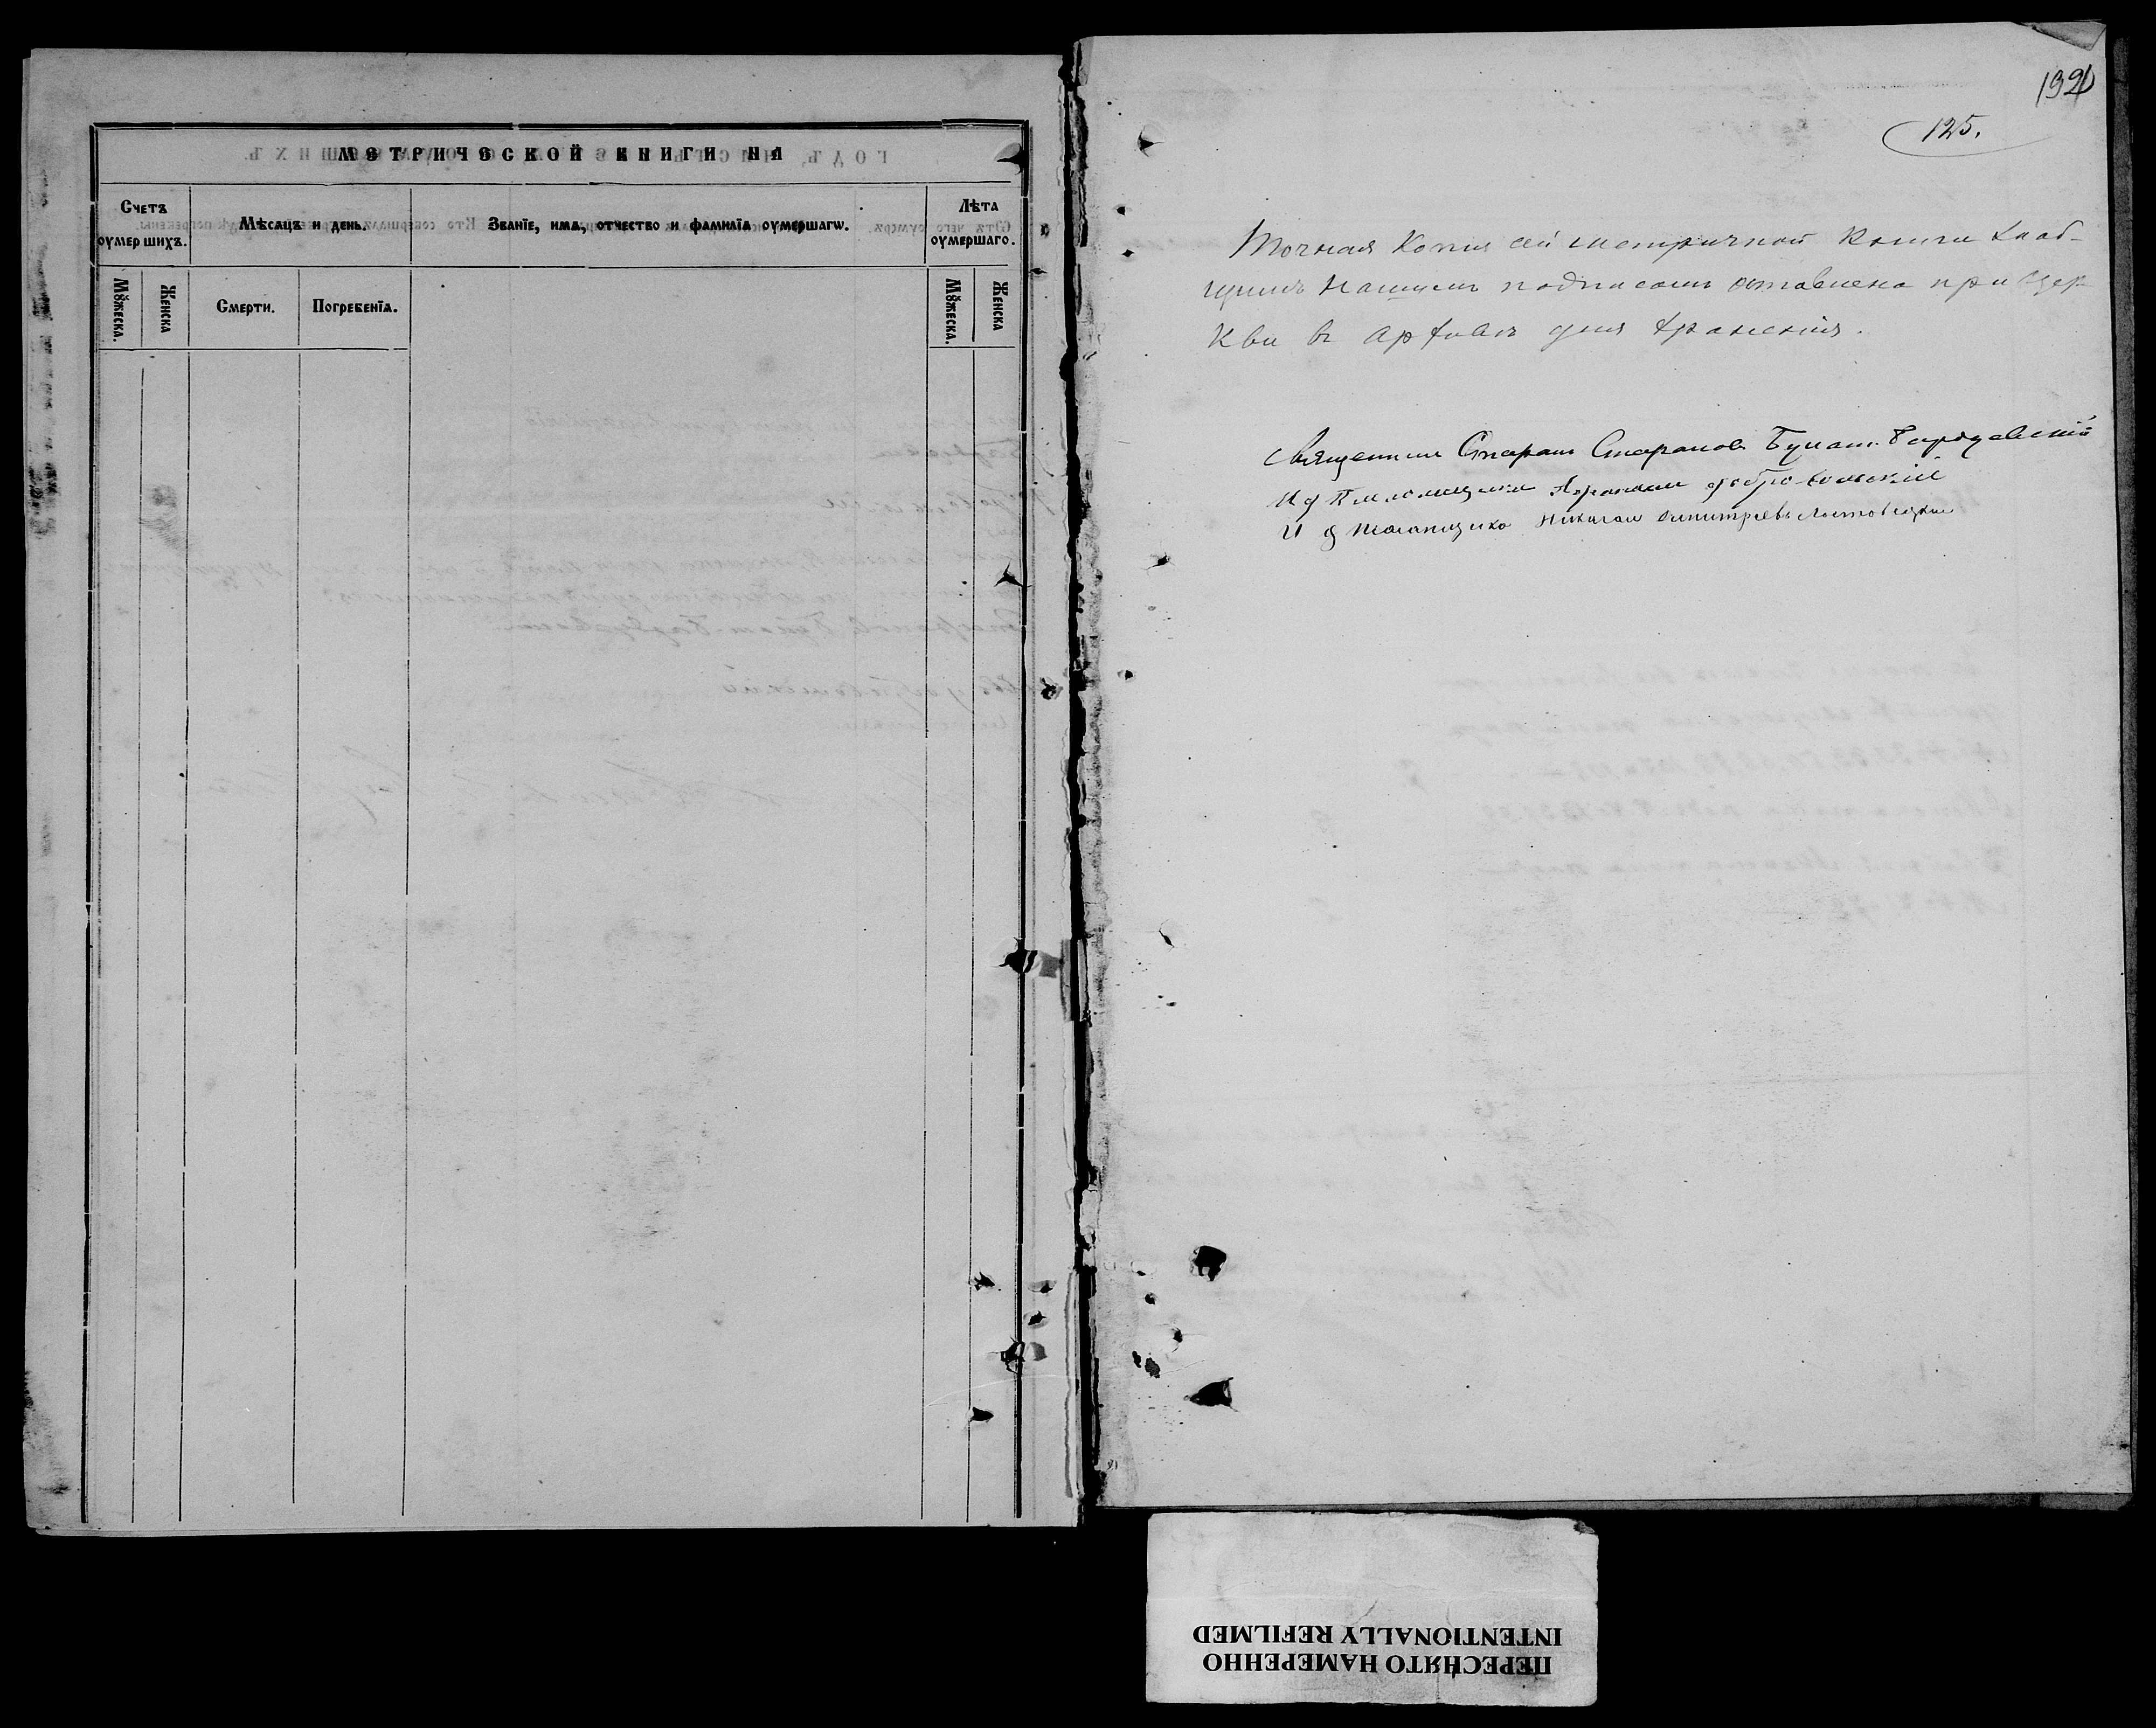 МЕТРИЧЕСКОЙ КНИГИ НА
Счетъ оумершихъ.
Мѣсяцъ и день.
Званїе, имѧ, отчество и фамилїѧ оумершагѡ.
Лѣта оумершаго.
Мȣжеска.
Женска
Смерти.
Погребенїѧ.
Мȣжеска.
Женска
192
125.
Точная Копия сей метричной Книги за об-
щимъ нашимъ подписомъ оставлена при Цер-
кви въ Архивѣ для храненія.
Священник Стефанъ Стефановъ
И д Псаломщика Добровольский
И д Псаломщика Николай Димитріевъ
ПЕРЕСНЯТО НАМЕРЕННО
INTENTIONALLY REFILMED